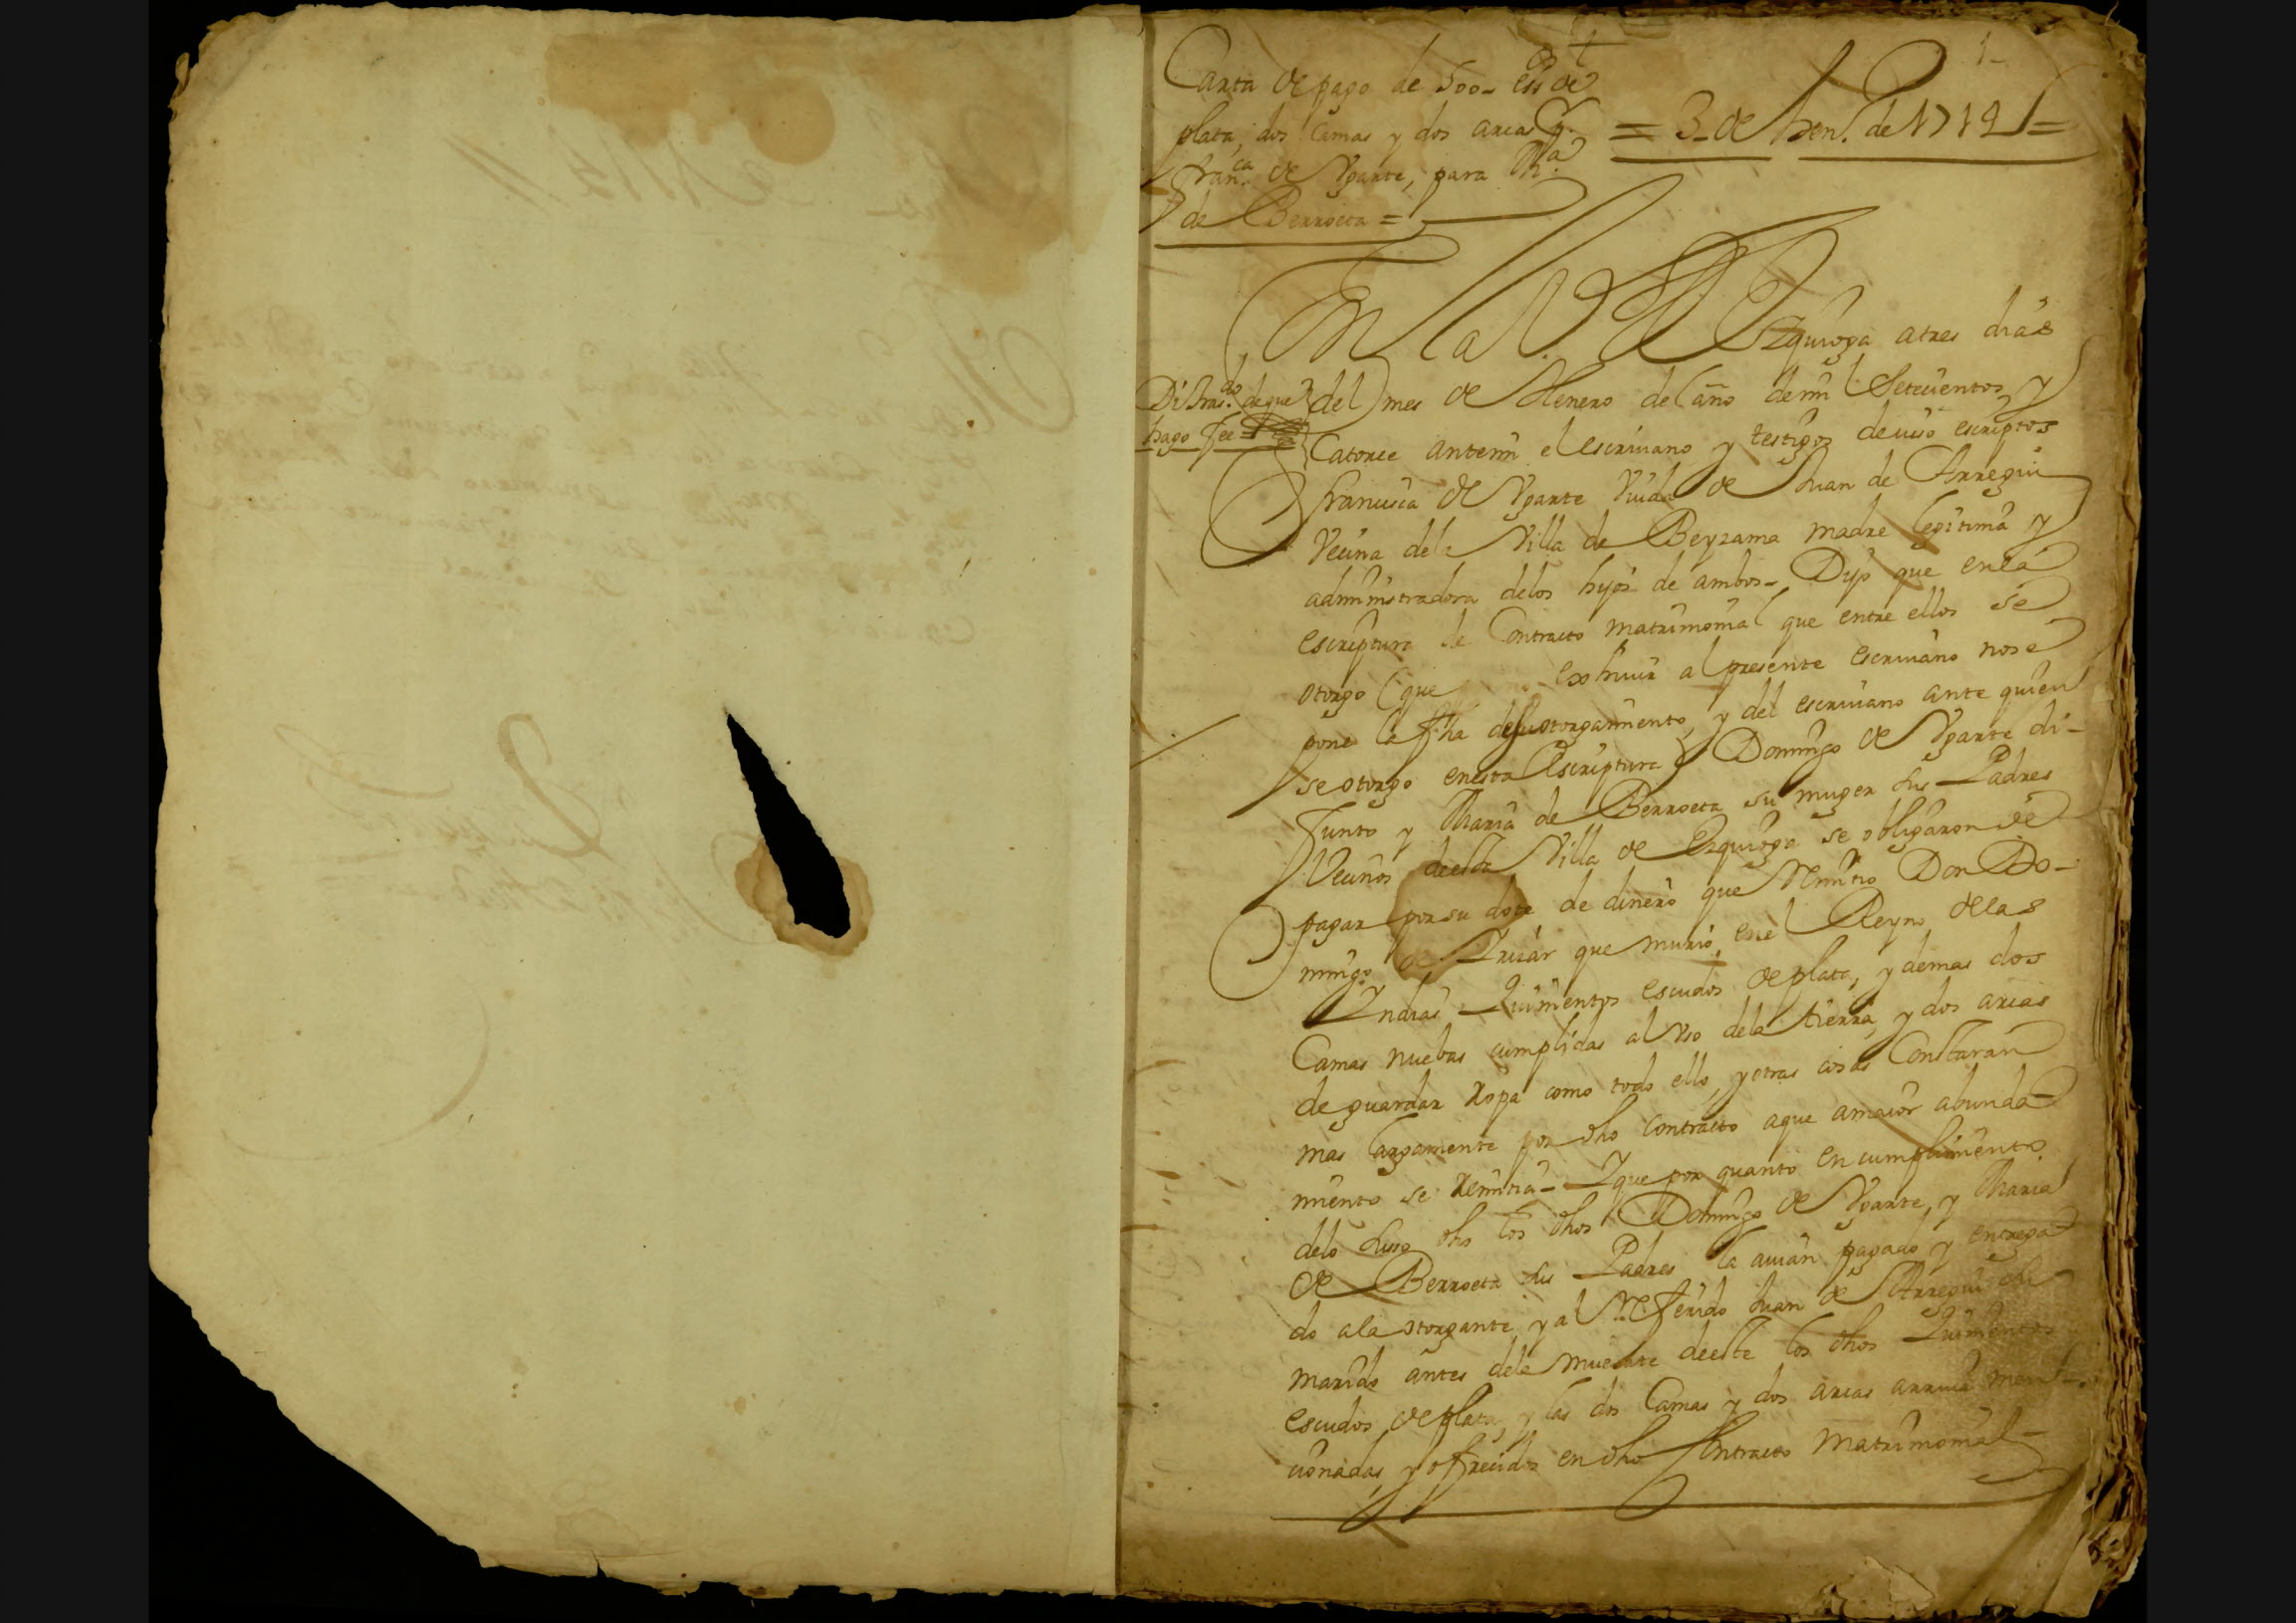 1
Carta de pago de 500 ess de
plata, dos Camas y dos arcas
Franca de Ygarte, para Ma
de Berroeta =
= 3 de hen. de 1714 =
En la Villa de Ezquioga a tres dias
Di tras.do de que
hago fee =
del mes de Henero del año de mil Setecientos y
Catorce antemi el escriuano y testigos de uiso escriptos
Francisca de Ygarte Viuda de Juan de Arregui
Vecina dela Villa de Beyzama madre legitima y
administradora delos hijos de ambos - Dijo que en la
escriptura de Contracto matrimonial que entre ellos se
otorgo (que exhiuir al presente escriuano no se
pone la fha de su otorgamiento, y del escriuano ante quien
se otorgo en esta Escriptura) Domingo de Ygarte di-
funto y Maria de Berroeta su muger sus Padres
Vecinos de esta Villa de Ezquioga se obligaron de
pagar por su dote de dinero que Remitio Don Do-
mingo de Yrizar que murio en el Reyno delas
Yndias Quinientos escudos de plata, y demas dos
Camas nuebas cumplidas al Vso dela tierra, y dos arcas
de guardar Ropa como todo ello, y otras cosas Constaran
mas largamente por dho Contracto a que a maior abunda
miento se Remitia - Y que por quanto en cumplimiento
delo suso dho los dhos Domingo de Ygarte, y Maria
de Berroeta sus Padres la auian pagado y entrega
do a la otorgante y al Referido Juan de Arregui su
marido antes dela muerte de este los dhos Quinientos
escudos de plata, y las dos Camas y dos arcas arriua men-
cionadas, y ofrecidos en dho Contracto Matrimonial -